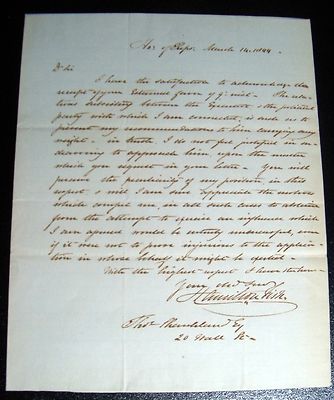 Ho. of Reps. March 14. 1844.
Dr Sir
I have the satisfaction to acknowledge the
receipt of your esteemed favor of 9 inst. The rela-
tions subsisting between the Executive & the political
party with which I am connected, is such as to
prevent my recommendations to him carrying any
weight - in truth, I do not feel justified in en-
deavoring to approach him, upon the matter
which you request in one letter. You will
perceive the peculiarity of my position in this
respect & will I am sure appreciate the motives
which compel me in all such cases to abstain
from the attempt to exercise an influence which
I am assured would be entirely unsuccessful, even
if it were not to prove injurious to the applica-
tion in whose behalf it might be exerted.
With the highest respect I have the honor
Your obed Serv
Hamilton Fish
Thos. Esq
20 Wall St.